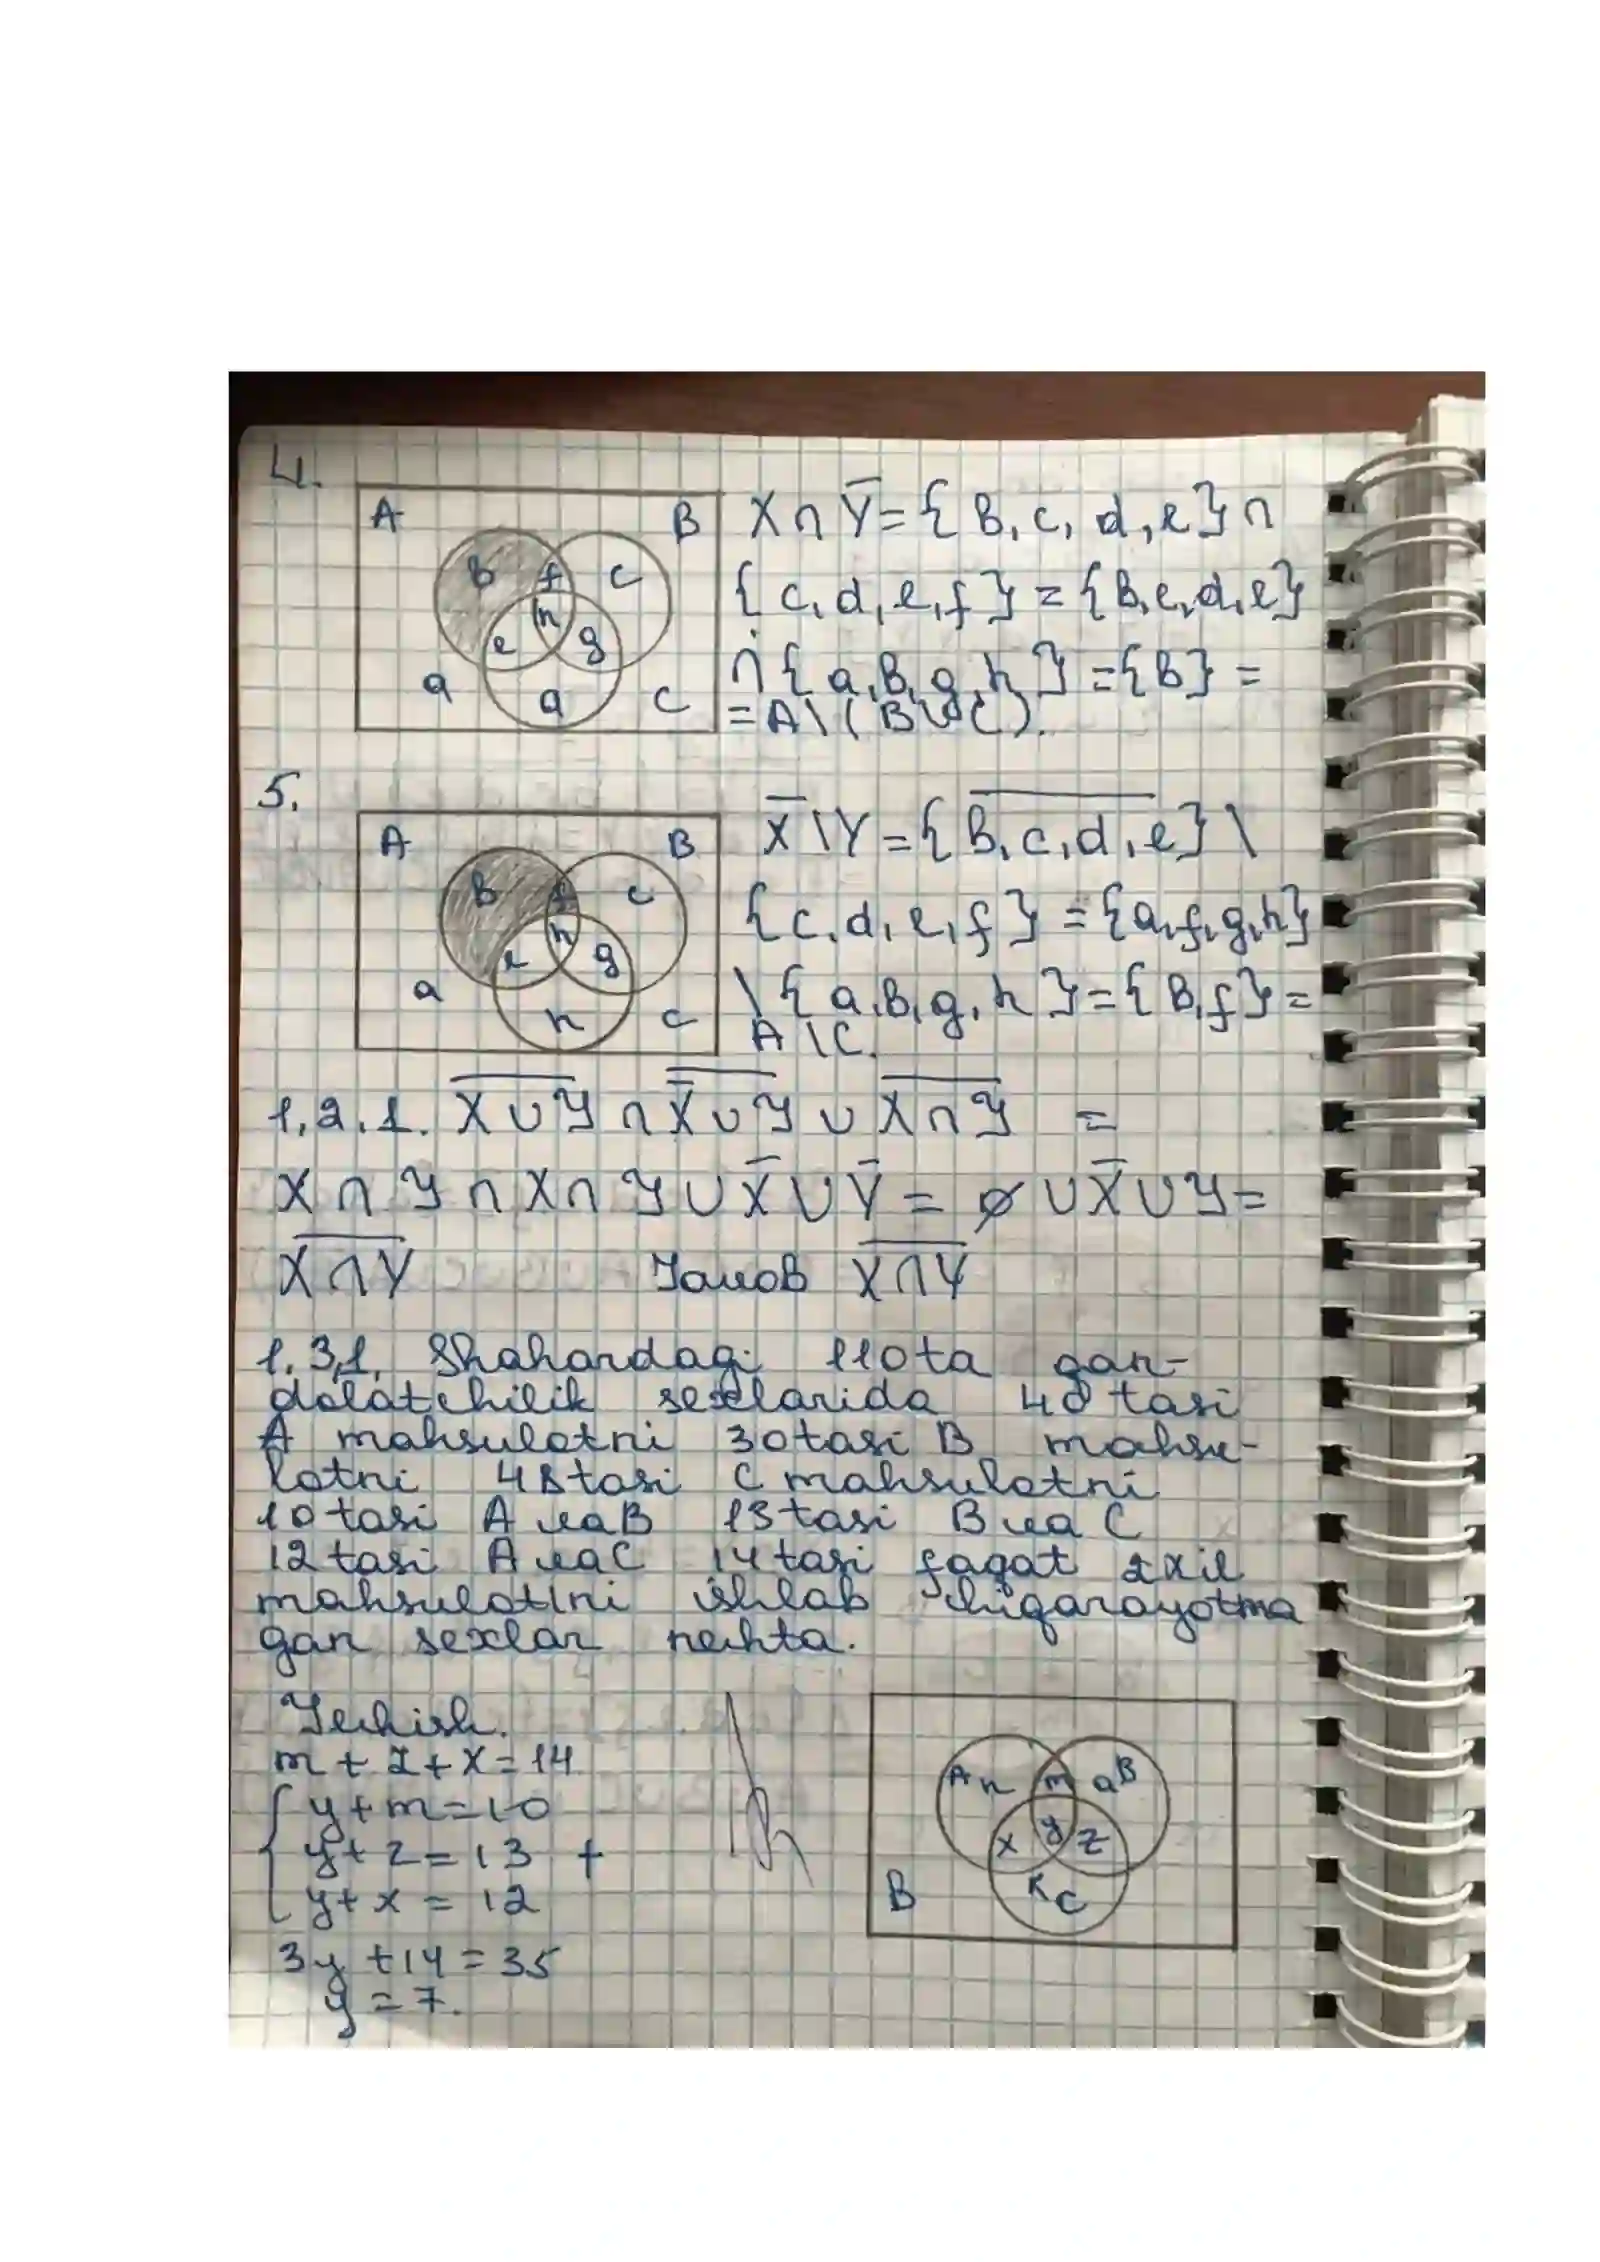 4.
A
B
b
f
c
h
e
g
a
a
C
X ∩ Y̅ = { B, c, d, e } ∩
{ c, d, e, f } = { B, c, d, e }
∩ { a, B, g, h } = { B } =
= A \ ( B ∪ C ).
5.
A
B
b
f
c
h
e
g
a
h
C
X̅ \ Y = { B, c, d, e } \
{ c, d, e, f } = { a, f, g, h }
\ { a, B, g, h } = { B, f } =
A \ C.
1, 2, 1. X ∪ Y ∩ X̅ ∪ Y ∪ X ∩ Y =
X ∩ Y ∩ X ∩ Y ∪ X̅ ∪ Y̅ = ∅ ∪ X̅ ∪ Y =
X ∩ Y X ∩ Y
1, 3, 1, Shahardagi 110 ta qan-
dolatchilik sexlarida 48 tasi
A mahsulotni 30 tasi B mahsu-
lotni 48 tasi C mahsulotni
10 tasi A va B 13 tasi B va C
12 tasi A va C 14 tasi faqat 2 xil
mahsulotni ishlab chiqarayotma
gan sexlar nechta.
Yechish.
m + z + x = 14
y + m = 10
y + z = 13 +
y + x = 12
3y + 14 = 35
y = 7.
A n m a B
x y z
B
K C